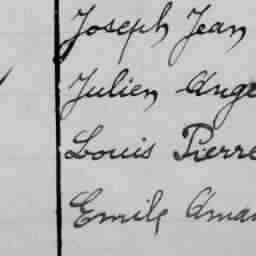 Joseph Jean
Julien Ange
Louis Pierre
Emile Aman